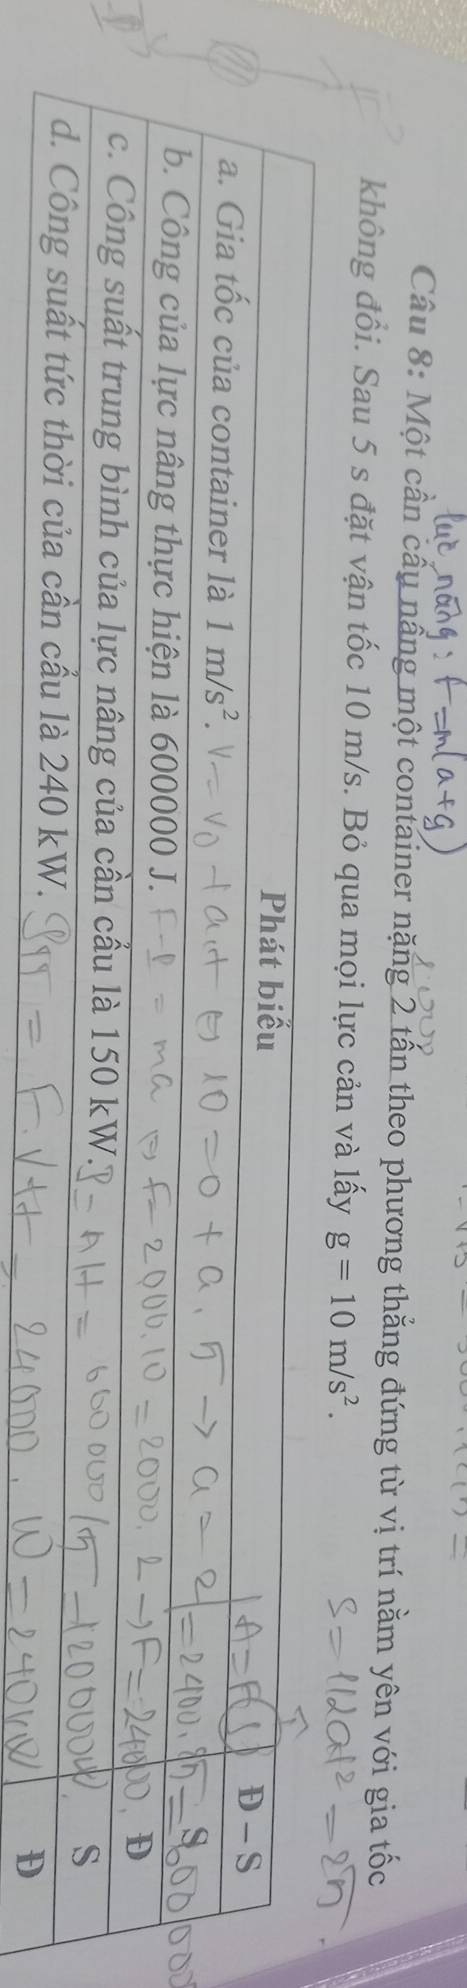 lực nâng: F=m(a+g)
Câu 8: Một cần cẩu nâng một container nặng 2 tấn theo phương thẳng đứng từ vị trí nằm yên với gia tốc
không đổi. Sau 5 s đặt vận tốc 10 m/s. Bỏ qua mọi lực cản và lấy g = 10 m/s².
S=1/2at²=25.
Phát biểu Đ – S
a. Gia tốc của container là 1 m/s². V=V₀+a.t ⇔ 10=0+a.5→a=2 S
A=F.S
b. Công của lực nâng thực hiện là 600000 J. F-P=ma ⇔ F-2000.10=2000.2→F=24000. Đ
=2400.25=600000
c. Công suất trung bình của lực nâng của cần cẩu là 150 kW. P=A/t=600000/5=120000W. S
d. Công suất tức thời của cần cẩu là 240 kW. Ptt=F.Vtt=24000.10=240kW Đ